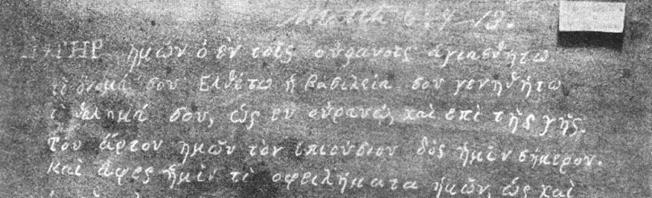 Matth 6. 9 13.
ΠΑΤΗΡ ημων ὁ εν τοῖς οὐρανοις ἁγιασθητω
τὸ ὄνομά σου Ελθέτω ἡ βασιλεία σου γενηθήτω
τὸ θέλημά σου, ὡς εν οὐρανῷ, καὶ επὶ τῆς γῆς.
Τον ἄρτον ημῶν τὸν επιούσιον δὸς ἡμῖν σήμερον.
Καὶ ἄφες ἡμῖν τὰ οφειλήματα ἡμῶν, ὡς καὶ